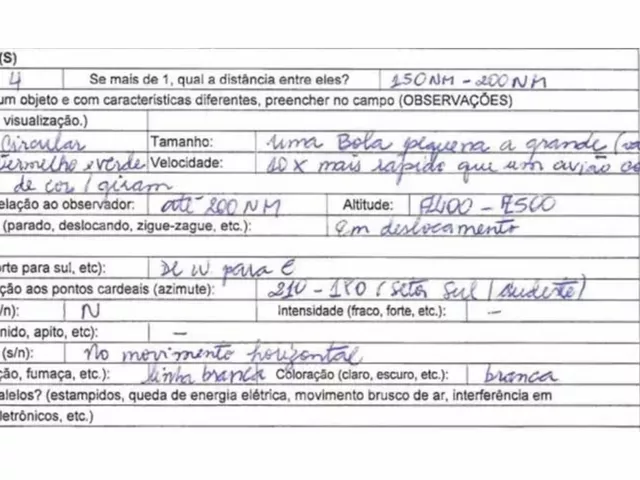 (S)
4 Se mais de 1, qual a distância entre eles? 150NM - 200NM
um objeto e com características diferentes, preencher no campo (OBSERVAÇÕES)
visualização.)
Circular Tamanho: uma Bola pequena a grande
Vermelho e verde Velocidade: 10x mais rapido que um avião
de cor / giram
elação ao observador: até 200NM Altitude: - 7500
(parado, deslocando, zigue-zague, etc.): Em deslocamento
orte para sul, etc): De W para E
ção aos pontos cardeais (azimute): 210 - 180 (Setor Sul / Sudeste)
/n): N Intensidade (fraco, forte, etc.): -
nido, apito, etc): -
(s/n): No movimento horizontal
ção, fumaça, etc.): linha branca Coloração (claro, escuro, etc.): branca
alelos? (estampidos, queda de energia elétrica, movimento brusco de ar, interferência em
letrônicos, etc.)